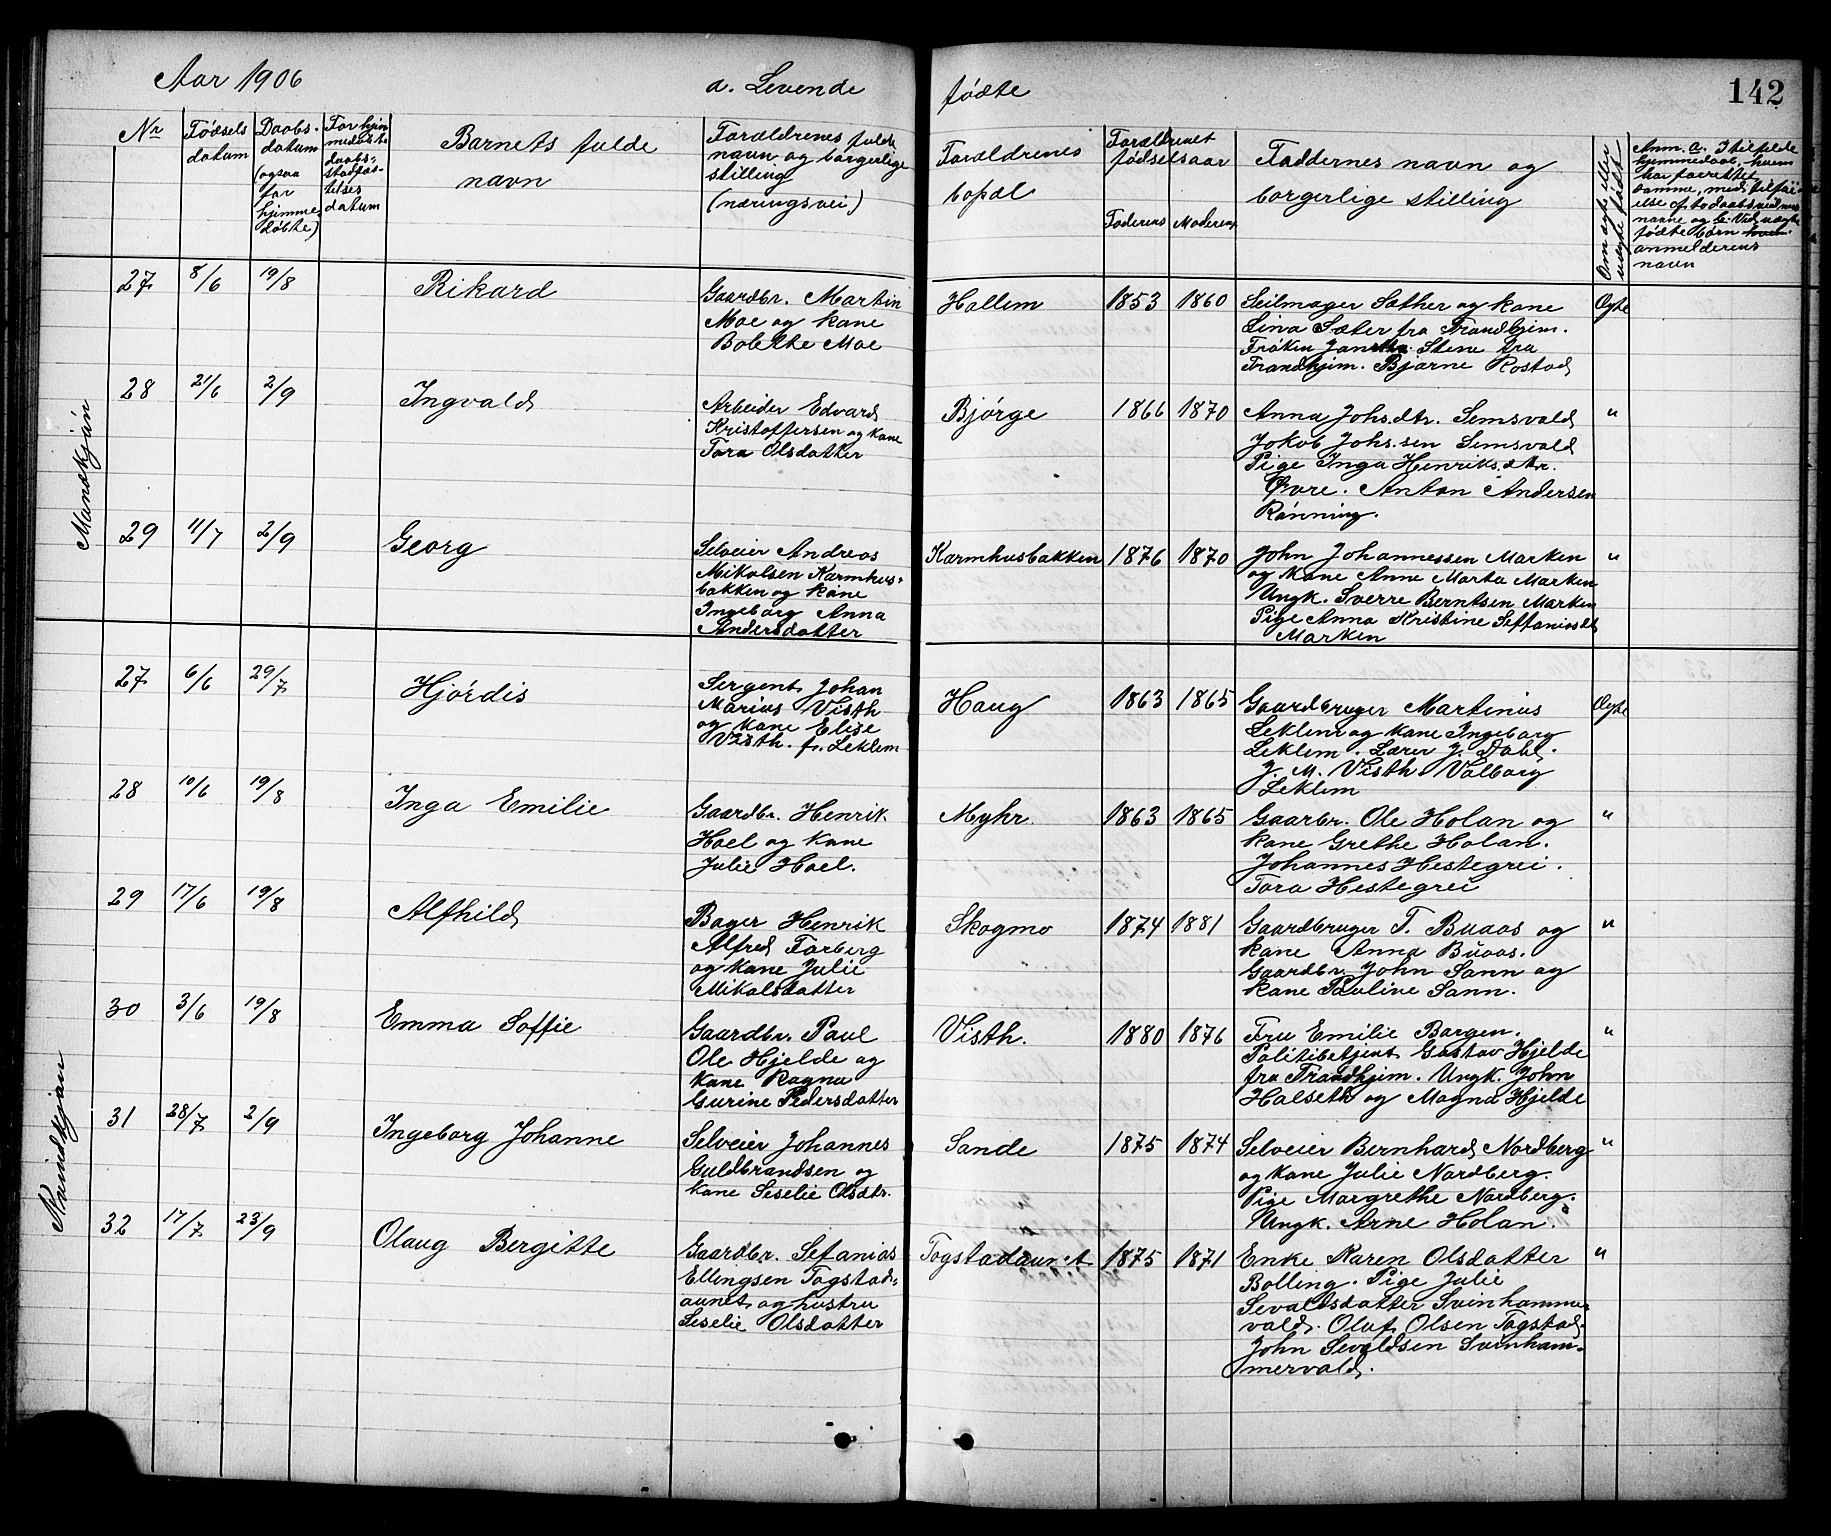 Aar 1906 a. Levende fødte 142
Nr
Fødsels
datum
Daabs-
datum
(ogsaa
for
hjemme-
døbte)
For hjem
medøbt
daabs-
stadfæs-
telses
datum
Barnets fulde
navn
Forældrenes fulde
navn og borgerlige
stilling
(næringsvei)
Forældrenes
bopæl
Forældrenes
fødselsaar
Faderens Moderens
Faddernes navn og
borgerlige stilling
Om ægte eller
uægte født
Anm. a. I tilfælde
hjemmedaab, hvem
har forrettet
samme, med
navne og b. Ved uægte
fødte børn
anmelderens
navn
Mandkjøn
27 8/6 19/8 Rikard
Gaardbr. Martin
Moe og kone
Bolette Moe
Hallem 1853 1860
Seilmager Sæther og kone
Lina Sæter fra Trondhjem.
Frøken Stene fra
Trondhjem. Bjarne Rostad
Ægte
28 21/6 2/9 Ingvald
Arbeider Edvard
Kristoffersen og kone
Tora Olsdatter
Bjørge 1866 1870
Anna Johs.dtr. Semsvald
Jakob Johs.sen Semsvald
Pige Inga Henriks.dtr.
Øvre. Anton Andersen
Rønning.
"
29 11/7 2/9 Georg
Selveier Andreas
Mikalsen Karmhus-
bakken og kone
Ingeborg Anna
Andersdatter
Karmhusbakken 1876 1870
John Johannessen Marken
og kone Anne Marta Marken
Ungk. Sverre Berntsen Marken
Pige Anna Kristine Steffaniasdt
Marken
"
Kvindkjøn
27 6/6 29/7 Hjørdis
Sergent Johan
Marius Visth
og kone Elise
Visth. f. Leklem
Haug 1863 1865
Gaardbruger Martinus
Leklem og kone Ingeborg
Leklem. Lærer J. Dahl.
J. M. Visth Valborg
Leklem
Ægte
28 10/6 19/8 Inga Emilie
Gaardbr. Henrik
Hoel og kone
Julie Hoel.
Myhr. 1863 1865
Gaarbr. Ole Holan og
kone Grethe Holan.
Johannes Hestegrei.
Tora Hestegrei
"
29 17/6 19/8 Alfhild
Bager Henrik
Alfred Forberg
og kone Julie
Mikalsdatter
Skogmo 1874 1881
Gaardbruger T. Buaas og
kone Anna Buaas.
Gaardbr. John Sann og
kone Pauline Sann.
"
30 3/6 19/8 Emma Soffie
Gaardbr. Paul
Ole Hjelde og
kone Ragna
Gurine Pedersdatter
Visth. 1880 1876
Fru Emilie Borgen.
Politibetjent Gustav Hjelde
fra Trondhjem. Ungk. John
Halseth og Magna Hjelde
"
31 28/7 2/9 Ingeborg Johanne
Selveier Johannes
Guldbrandsen og
koneSeselie Olsdtr.
Sande 1875 1874
Selveier Bernhard Nordberg
og kone Julie Nordberg.
Pige Margrethe Nordberg.
Ungk. Arne Holan
"
32 17/7 23/9 Olaug Bergitte
Gaardbr. Sefanias
Ellingsen Togstad-
aunet og hustru
Seselie Olsdatter
Togstadaunet 1875 1871
Enke Karen Olsdatter
Bolling. Pige Julie
Sevaldsdatter Svinhammer
vald. Oluf Olsen Togstad.
John Sevaldsen Svinham-
mervald.
"